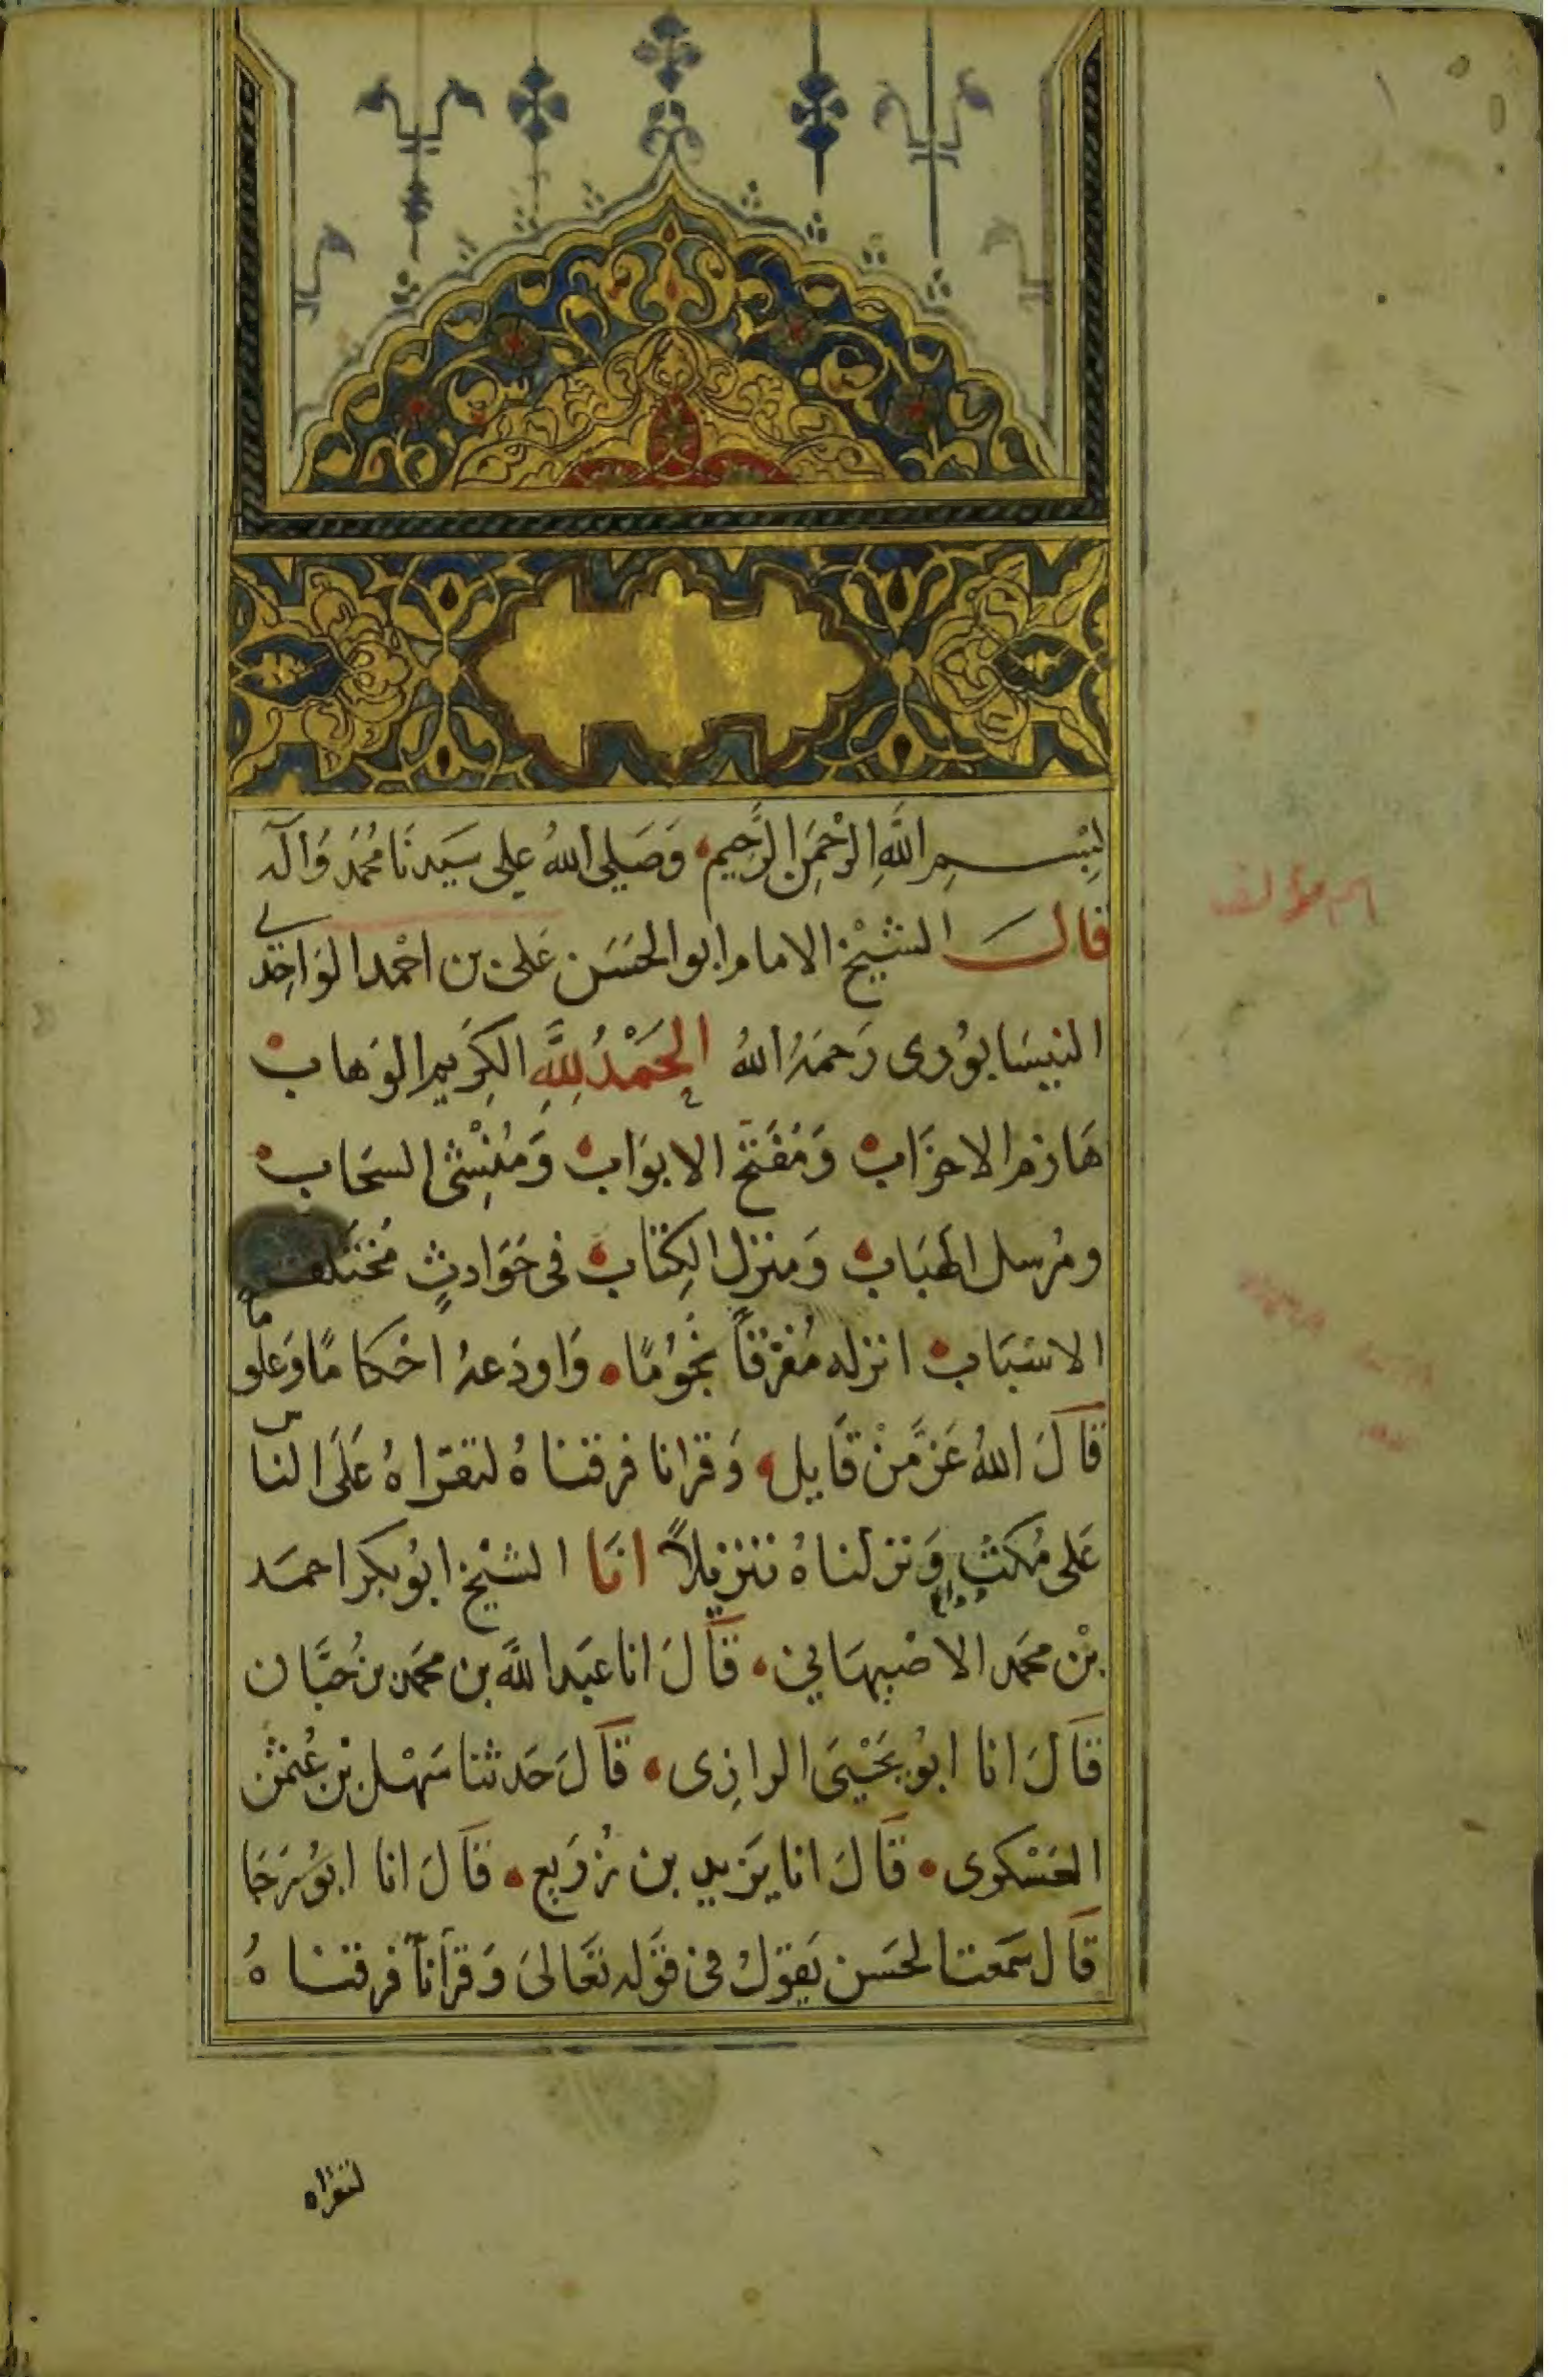 بِسْمِ اللَّهِ الرَّحْمَنِ الرَّحِيمِ وَصَلَى اللهُ عَلى سَيِدنَا مُحَمَد وَالَه
قال الشيْخ الامام ابو الحَسَن عَلى بن احْمد الوَاحِدى
النيسَابوُرى رَحمَهُ اللهُ الحَمْدُ لِلَّهِ الكِرَيم الوَهاب
هَازم الاحزَاب وَمُفَتح الابوَاب وَمُنْشِئ السحَاب
ومُرسل الهبَاب وَمنزل الكِتاب فى حَوَادثٍ مُختَلفة
الاسبَاب انزله مُفَرقاً نجُوُمًا وَاودَعهُ احْكامًا وَعلوما
قالَ اللهُ عَزَّ مَنْ قَايل وَقرانا فرقناهُ لتقراهُ عَلَى الناس
عَلى مُكثٍ وَنزلناهُ تنزيلاً انا الشيْخ ابوُ بكر احمَد
بْن محمَد الاصْبهَانى قَالَ انا عبَد اللَّه بن محمَد بن حُبَّان
قَالَ انا ابوُ يَحْيىَ الرازى قَالَ حَدثنا سَهْل بْن عُثمٰن
العَسْكرى قَالَ انا يَزيد بن زُرَيع قَالَ انا ابوُ رَجَا
قَال سَمعت الحَسن يَقوَلُ فى قوَله تعَالىَ وَقرأناً فرقناهُ
لتقراه
اسم مؤلف